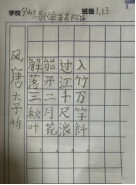 学校
班级 1.13
风 唐 李峤
解落三秋叶
能开二月花
过江千尺浪
入竹万竿斜